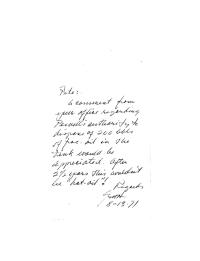 Pete:
A comment from
your office regarding
Powell's authority to
dispose of 200 bbls
of frac. oil in the
tank would be
appreciated. After
2½ years this wouldn't
be "hot-oil"!
Regards
8-13-71